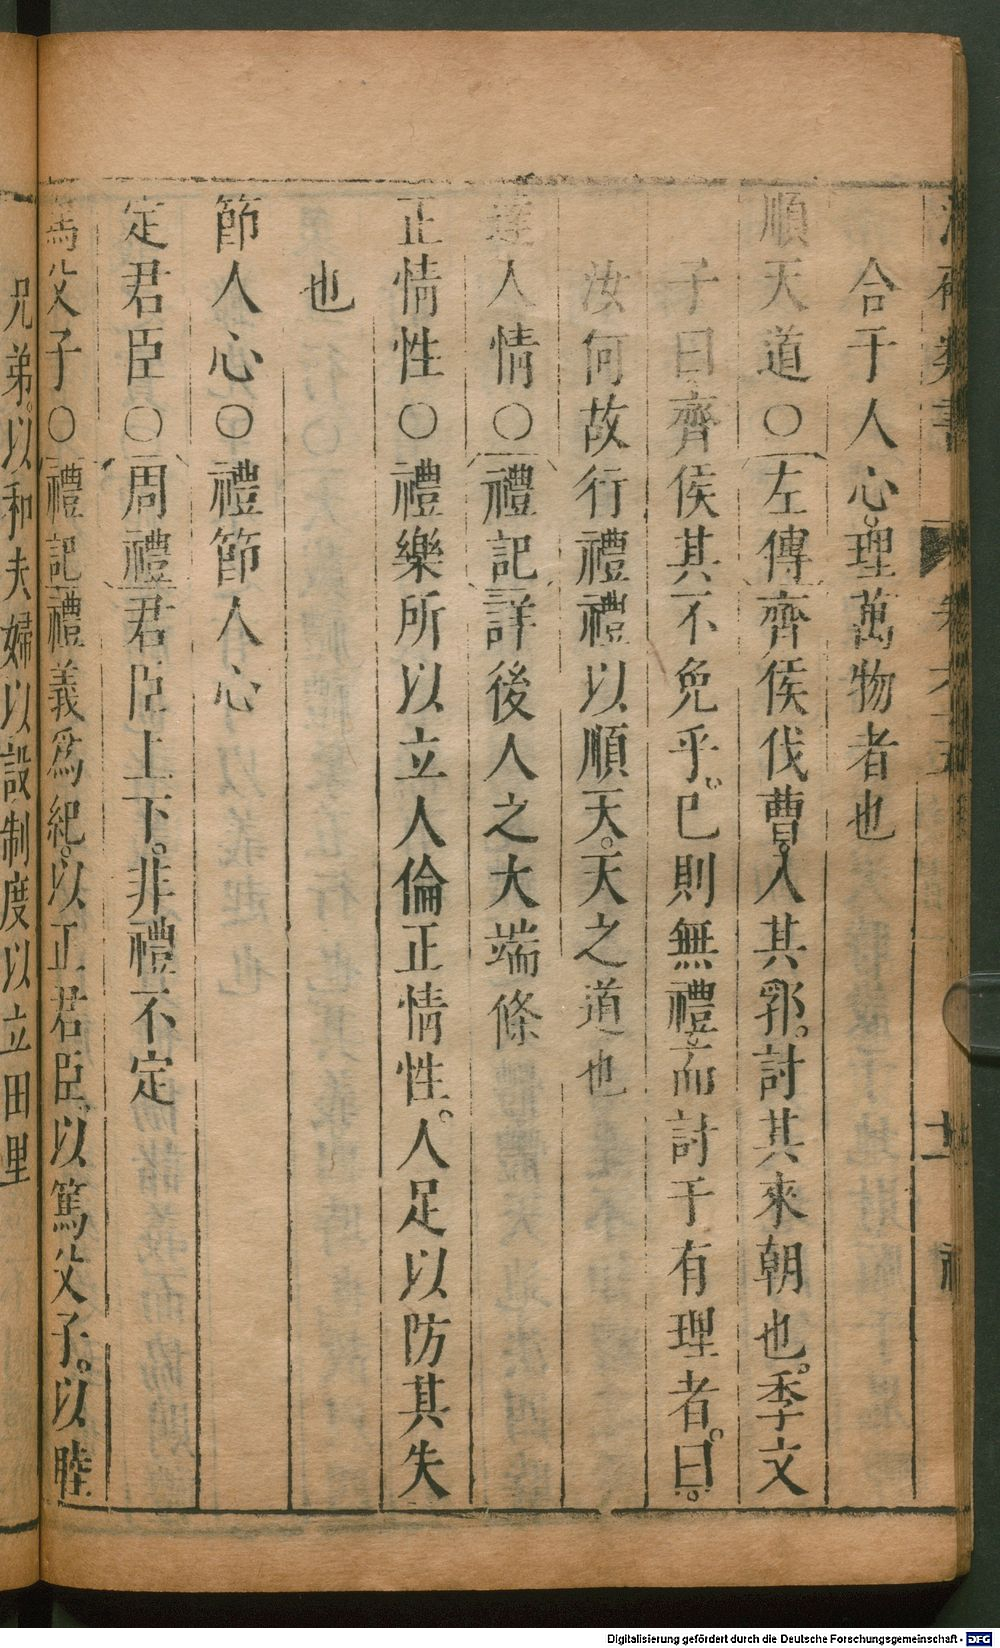 合于人心。理萬物者也
順天道○左傳齊侯伐曹。入其郛。討其來朝也。季文
子曰齊侯其不免乎。已則無禮。而討于有理者。曰。
汝何故行禮禮以順天。天之道也
達人情○禮記詳後人之大端條
正情性○禮樂所以立人倫正情性。人足以防其失
也
節人心○禮節人心
定君臣○周禮君臣上下。非禮不定
篤父子○禮記禮義爲紀。以正君臣。以篤父子。以睦
兄弟。以和夫婦以設制度以立田里
Digitalisierung gefördert durch die Deutsche Forschungsgemeinschaft - DFG